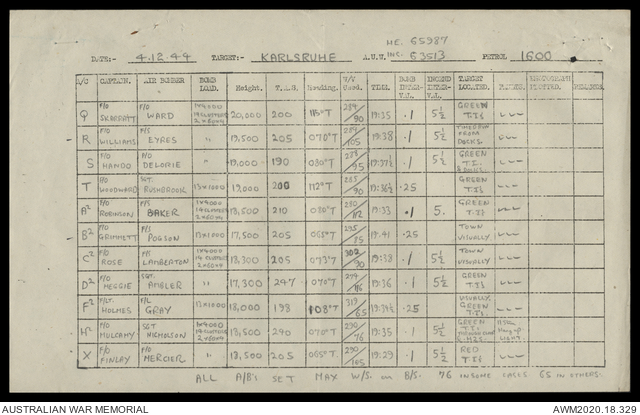 HE. 65987
DATE:- 4.12.44 TARGET:- KARLSRUHE A.U.W. INC. 63513 PETROL 1600
A/C CAPTAIN. AIR BOMBER BOMB LOAD. Height. T.A.S. Heading. W/V Used. TIME. BOMB INTER-VAL. INCEND INTER-VAL. TARGET LOCATED. REMARKS.
Q F/O SKARRATT F/O WARD 1x4000 2x60x4 20,000 200 115°T 284/90 19.35 .1 5½ GREEN T.I.
R F/O WILLIAMS F/S EYRES " 19,500 205 070°T /105 19.38 .1 5½ TIMED RUN FROM DOCKS.
S F/O HANDO F/O DELORIE " 19,000 190 080°T /95 19.37½ .1 5½ GREEN T.I.
T F/O WOODWARD SGT. RUSHBROOK 13x1000 19,000 200 112°T 285/90 19.36½ .25 GREEN T.I's
A² F/O ROBINSON F/S BAKER 1x4000 2x60x4 18,500 210 080°T 280/112 19.33 .1 5. GREEN T.I's
B² F/O GRIMMETT F/S POGSON 13x1000 17,500 205 065°T 295/85 19.41 .25 TOWN VISUALLY.
C² F/O ROSE F/S LAMBERTON 1x4000 2x60x4 18,300 205 073°T 302/90 19.38 .1 5½ TOWN VISUALLY.
D² F/O MEGGIE SGT. AMBLER " 17,300 247 070°T 274/116 19.36 .1 5½ GREEN T.I's
F² F/LT. HOLMES F/L GRAY 18,000 198 108°T 319/65 19.34½ .25 VISUALLY. GREEN T.I's
H² F/O MULCAHY SGT NICHOLSON 1x4000 2x60x4 18,500 240 070°T 290/76 19.35 .1 5½ GREEN T.I's LIGHT.
X F/O FINLAY F/O MERCIER " 18,500 205 065°T 290/105 19.29 .1 5½ RED T.I's
ALL A/B's SET MAX W/S. on B/S. 76 IN SOME CASES 65 IN OTHERS.
AUSTRALIAN WAR MEMORIAL AWM2020.18.329